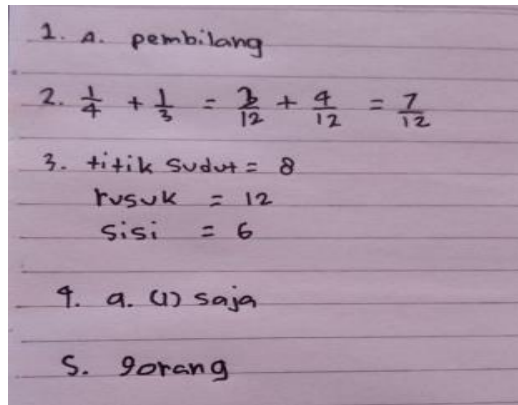 1. A. pembilang
2. 1/4 + 1/3 = 3/12 + 4/12 = 7/12
3. titik sudut = 8
rusuk = 12
sisi = 6
4. a. (1) saja
5. 9orang